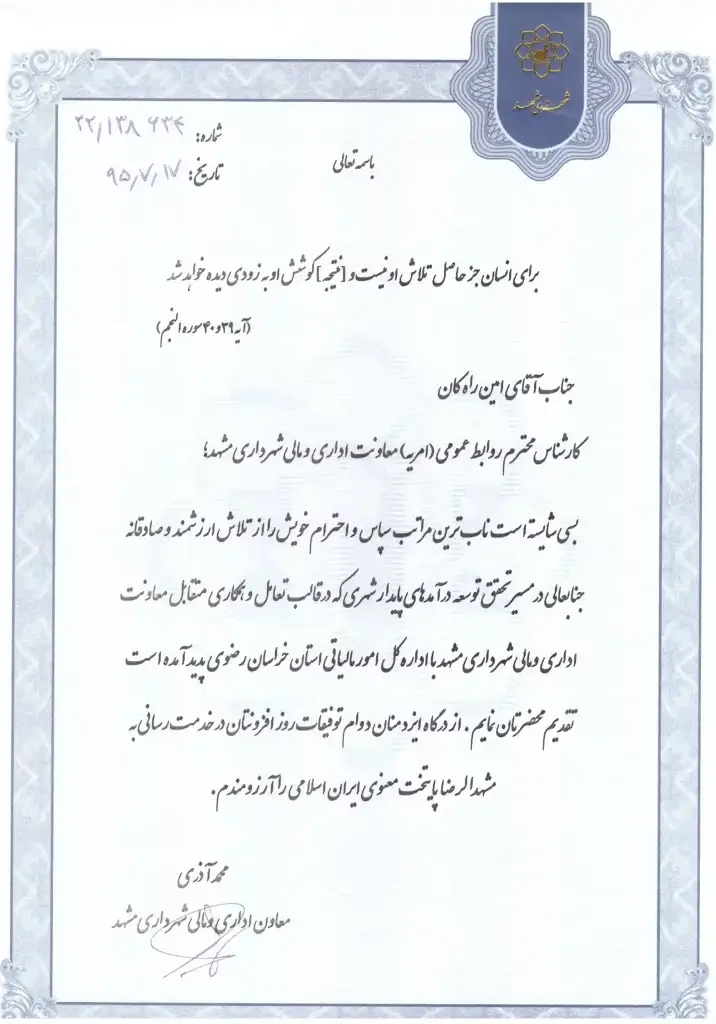 شهرداری مشهد
شماره: ۲۲/۱۳۸۶۳۴
تاریخ: ۹۵/۷/۱۷
باسمه تعالی
برای انسان جز حاصل تلاش او نیست و [نتیجه] کوشش او به زودی دیده خواهد شد
(آیه ۳۹ و ۴۰ سوره النجم)
جناب آقای امین راه کان
کارشناس محترم روابط عمومی (امریه) معاونت اداری و مالی شهرداری مشهد؛
بسی شایسته است ناب ترین مراتب سپاس و احترام خویش را از تلاش ارزشمند و صادقانه
جنابعالی در مسیر تحقق توسعه درآمدهای پایدار شهری که در قالب تعامل و همکاری متقابل معاونت
اداری و مالی شهرداری مشهد با اداره کل امور مالیاتی استان خراسان رضوی پدید آمده است
تقدیم محضرتان نمایم. از درگاه ایزد منان دوام توفیقات روز افزونتان در خدمت رسانی به
مشهدالرضا پایتخت معنوی ایران اسلامی را آرزومندم.
محمد آذری
معاون اداری و مالی شهرداری مشهد